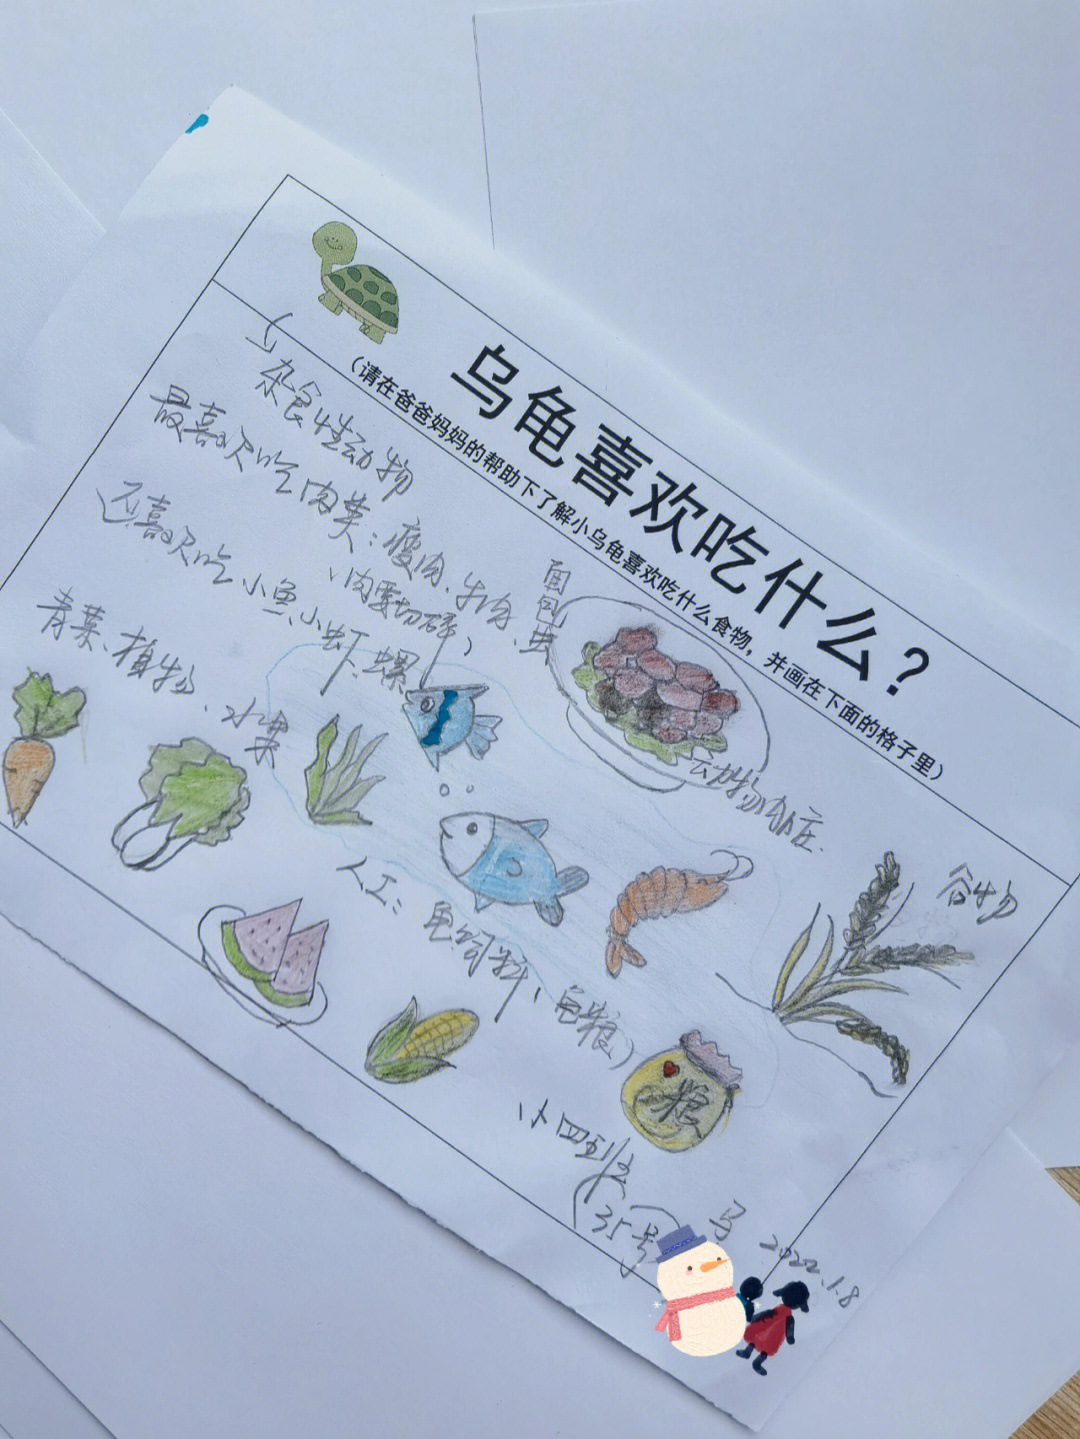 乌龟喜欢吃什么？
（请在爸爸妈妈的帮助下了解小乌龟喜欢吃什么食物，并画在下面的格子里）
杂食性动物
最喜欢吃肉类：瘦肉、牛肉、面包虫
（肉要切碎）
还喜欢吃小鱼小虾、螺
青菜、植物、水果
动物内脏
谷物
人工：龟饲料（龟粮）
粮
小四班
（35号）
马
2022.1.8